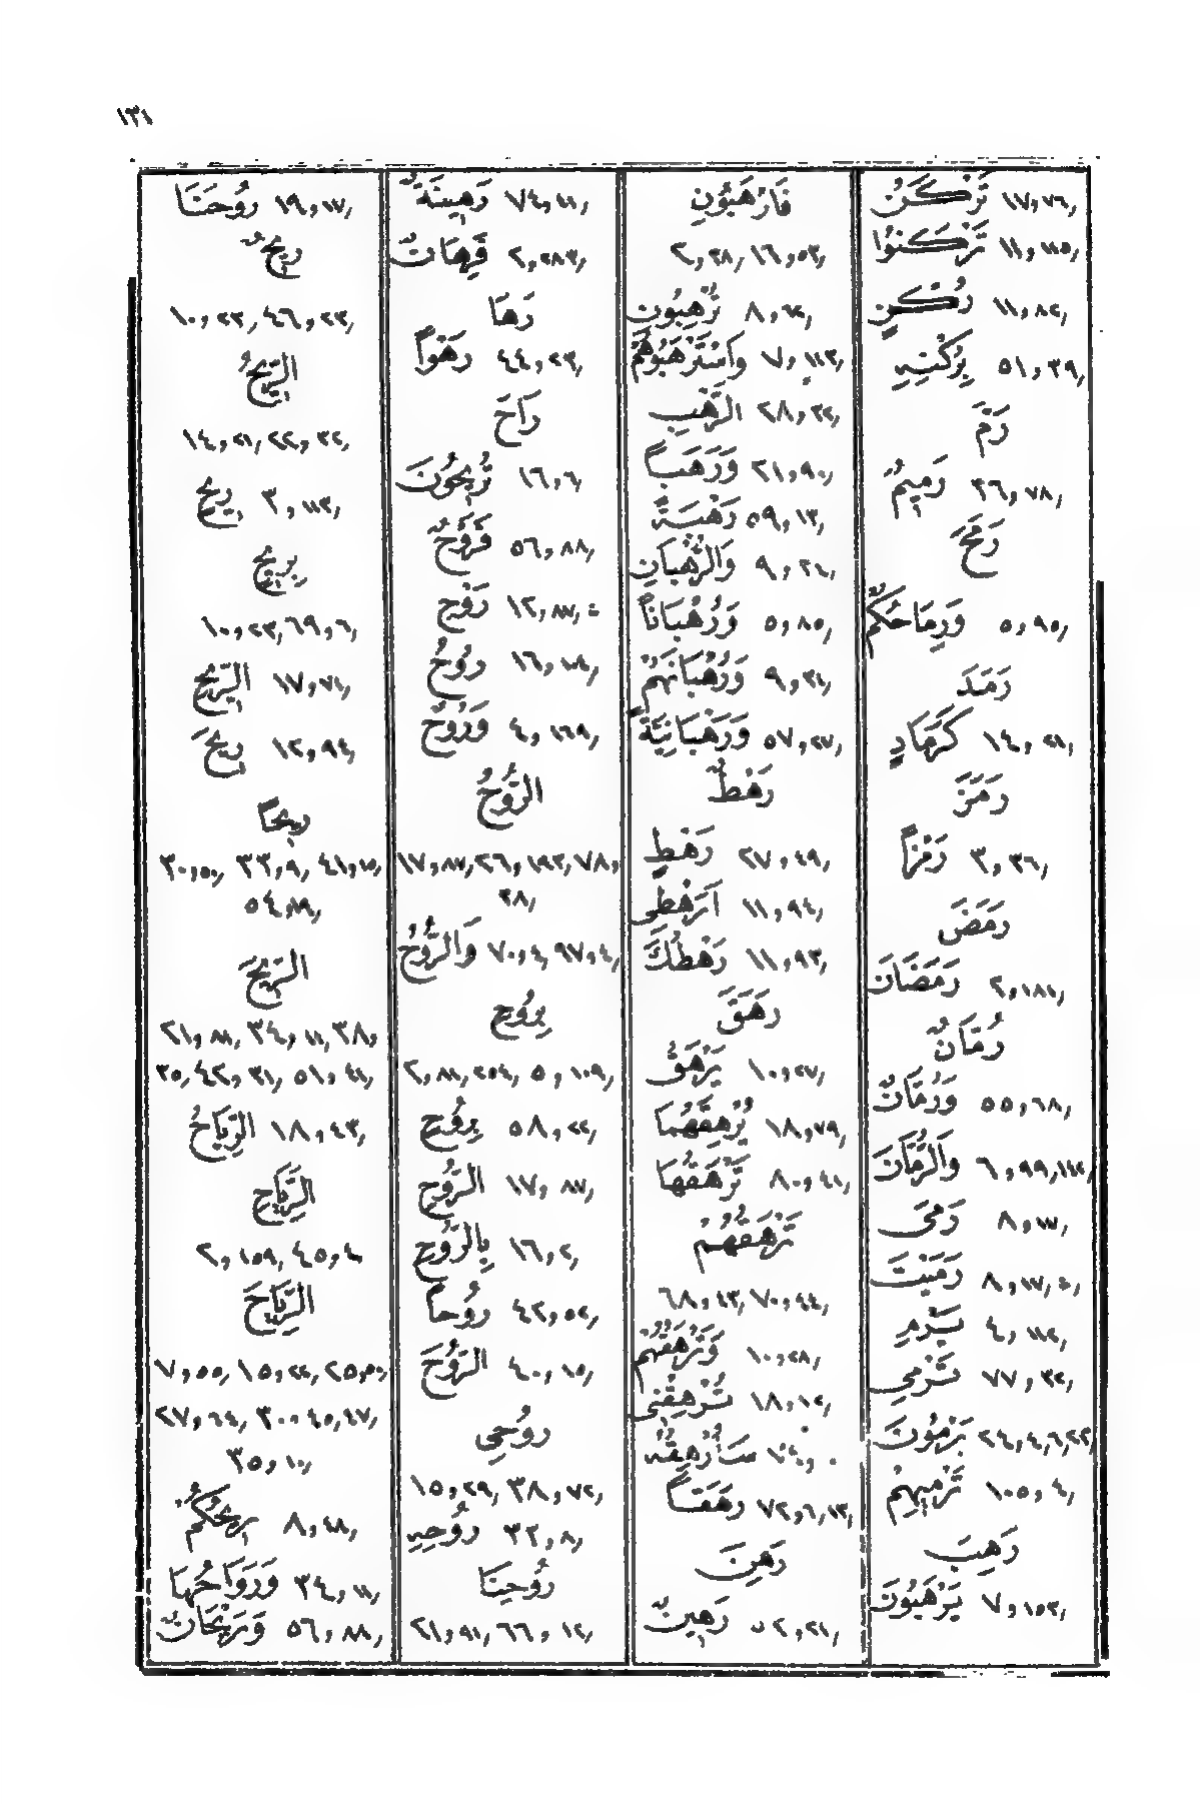 ١٣١
تَرْكَنُ ١٧,٧٦,
تَرْكَنُوٓا ١١,١١٥,
رُكْنٍ ١١,٨٢,
بِرُكْنِهِ ٥١,٣٩,
رَمَّ
رَمِيمٌ ٣٦,٧٨,
رَمَحَ
وَرِمَاحُكُمْ ٥,٩٥,
رَمَدَ
كَرَمَادٍ ١٤,٢١,
رَمَزَ
رَمْزاً ٣,٣٦,
رَمَضَ
رَمَضَانَ ٢,١٨١,
رُمَّانٌ
وَرُمَّانٌ ٥٥,٦٨,
وَالرُّمَّانَ ٦,٩٩,١٤٢,
رَمَى ٨,١٧,
رَمَيْتَ ٨,١٧,=,
يَرْمِ ٤,١١٢,
تَرْمِي ٧٧,٣٢,
يَرْمُونَ ٢٤,٤,٦,٢٣,
تَرْمِيهِمْ ١٠٥,٤,
رَهِبَ
يَرْهَبُونَ ٧,١٥٣,
فَارْهَبُونِ
٢,٣٨,١٦,٥٣,
تُرْهِبُونَ ٨,٦٢,
وَاسْتَرْهَبُوهُمْ ٧,١١٣,
الرَّهْبِ ٢٨,٣٢,
وَرَهَباً ٢١,٩٠,
رَهْبَةً ٥٩,١٣,
وَالرُّهْبَانِ ٩,٣٤,
وَرُهْبَاناً ٥,٨٥,
وَرُهْبَانَهُمْ ٩,٣١,
وَرَهْبَانِيَّةً ٥٧,٢٧,
رَهْطٌ
رَهْطٍ ٢٧,٤٩,
اَرَهْطِى ١١,٩٤,
رَهْطُكَ ١١,٩٣,
رَهَقَ
يَرْهَقُ ١٠,٢٧,
يُرْهِقَهُمَا ١٨,٧٩,
تَرْهَقُهَا ٨٠,٤١,
تَرْهَقُهُمْ
٦٨,٤٣,٧٠,٤٤,
وَتَرْهَقُهُمْ ١٠,٢٨,
تُرْهِقْنِى ١٨,١٢,
سَأُرْهِقُهُ
رَهَقاً ٧٢,٦,١٣,
رَهَنَ
رَهِينٌ ٥٢,٢١,
رَهِينَةٌ ٧٤,٤١,
فَرِهَانٌ ٢,٢٨٣,
رَهَا
رَهْواً ٤٤,٢٣,
رَاحَ
تُرِيحُونَ ١٦,٦,
فَرَوْحٌ ٥٦,٨٨,
رَوْحِ ١٢,٨٧,=
رُوحُ ١٦,١٠٤,
وَرُوحٌ ٤,١٦٩,
الرُّوحُ
١٧,٨٧,٢٦,١٩٣,٧٨,
٣٨,
وَالرُّوحُ ٧٠,٤,٩٧,٤,
بِرُوحِ
٢,٨١,٢٥٤,٥,١٠٩,
بِرُوحٍ ٥٨,٢٢,
الرُّوحِ ١٧,٨٧,
بِالرُّوحِ ١٦,٢,
رُوحاً ٤٢,٥٢,
الرُّوحَ ٤٠,١٥,
رُوحِى
١٥,٢٩,٣٨,٧٢,
رُوحِهِ ٣٢,٨,
رُوحِنَا
٢١,٩١,٦٦,١٢,
رُوحَنَا ١٩,١٧,
رِيحٌ
١٠,٢٣,٤٦,٢٣,
الرِّيحُ
١٤,٢١,٢٢,٣٢,
رِيحٍ ٣,١١٣,
بِرِيحٍ
١٠,٢٣,٦٩,٦,
الرِّيحِ ١٧,٧١,
رِيحَ ١٢,٩٤,
رِيحاً
٣٠,٥٠,٣٣,٩,٤١,١٥,
٥٤,١٩,
الرِّيحَ
٢١,٨١,٣٤,١١,٣٨,
٣٥,٤٢,٣١,٥١,٤١,
الرِّيَاحُ ١٨,٤٣,
الرِّيَاحِ
٢,١٥٩,٤٥,٤,
الرِّيَاحَ
٧,٥٥,١٥,٢٢,٢٥,٥٠,
٢٧,٦٤,٣٠,٤٥,٤٧,
٣٥,١٠,
رِيحُكُمْ ٨,٤٨,
وَرَوَاحُهَا ٣٤,١١,
وَرَيْحَانٌ ٥٦,٨٨,